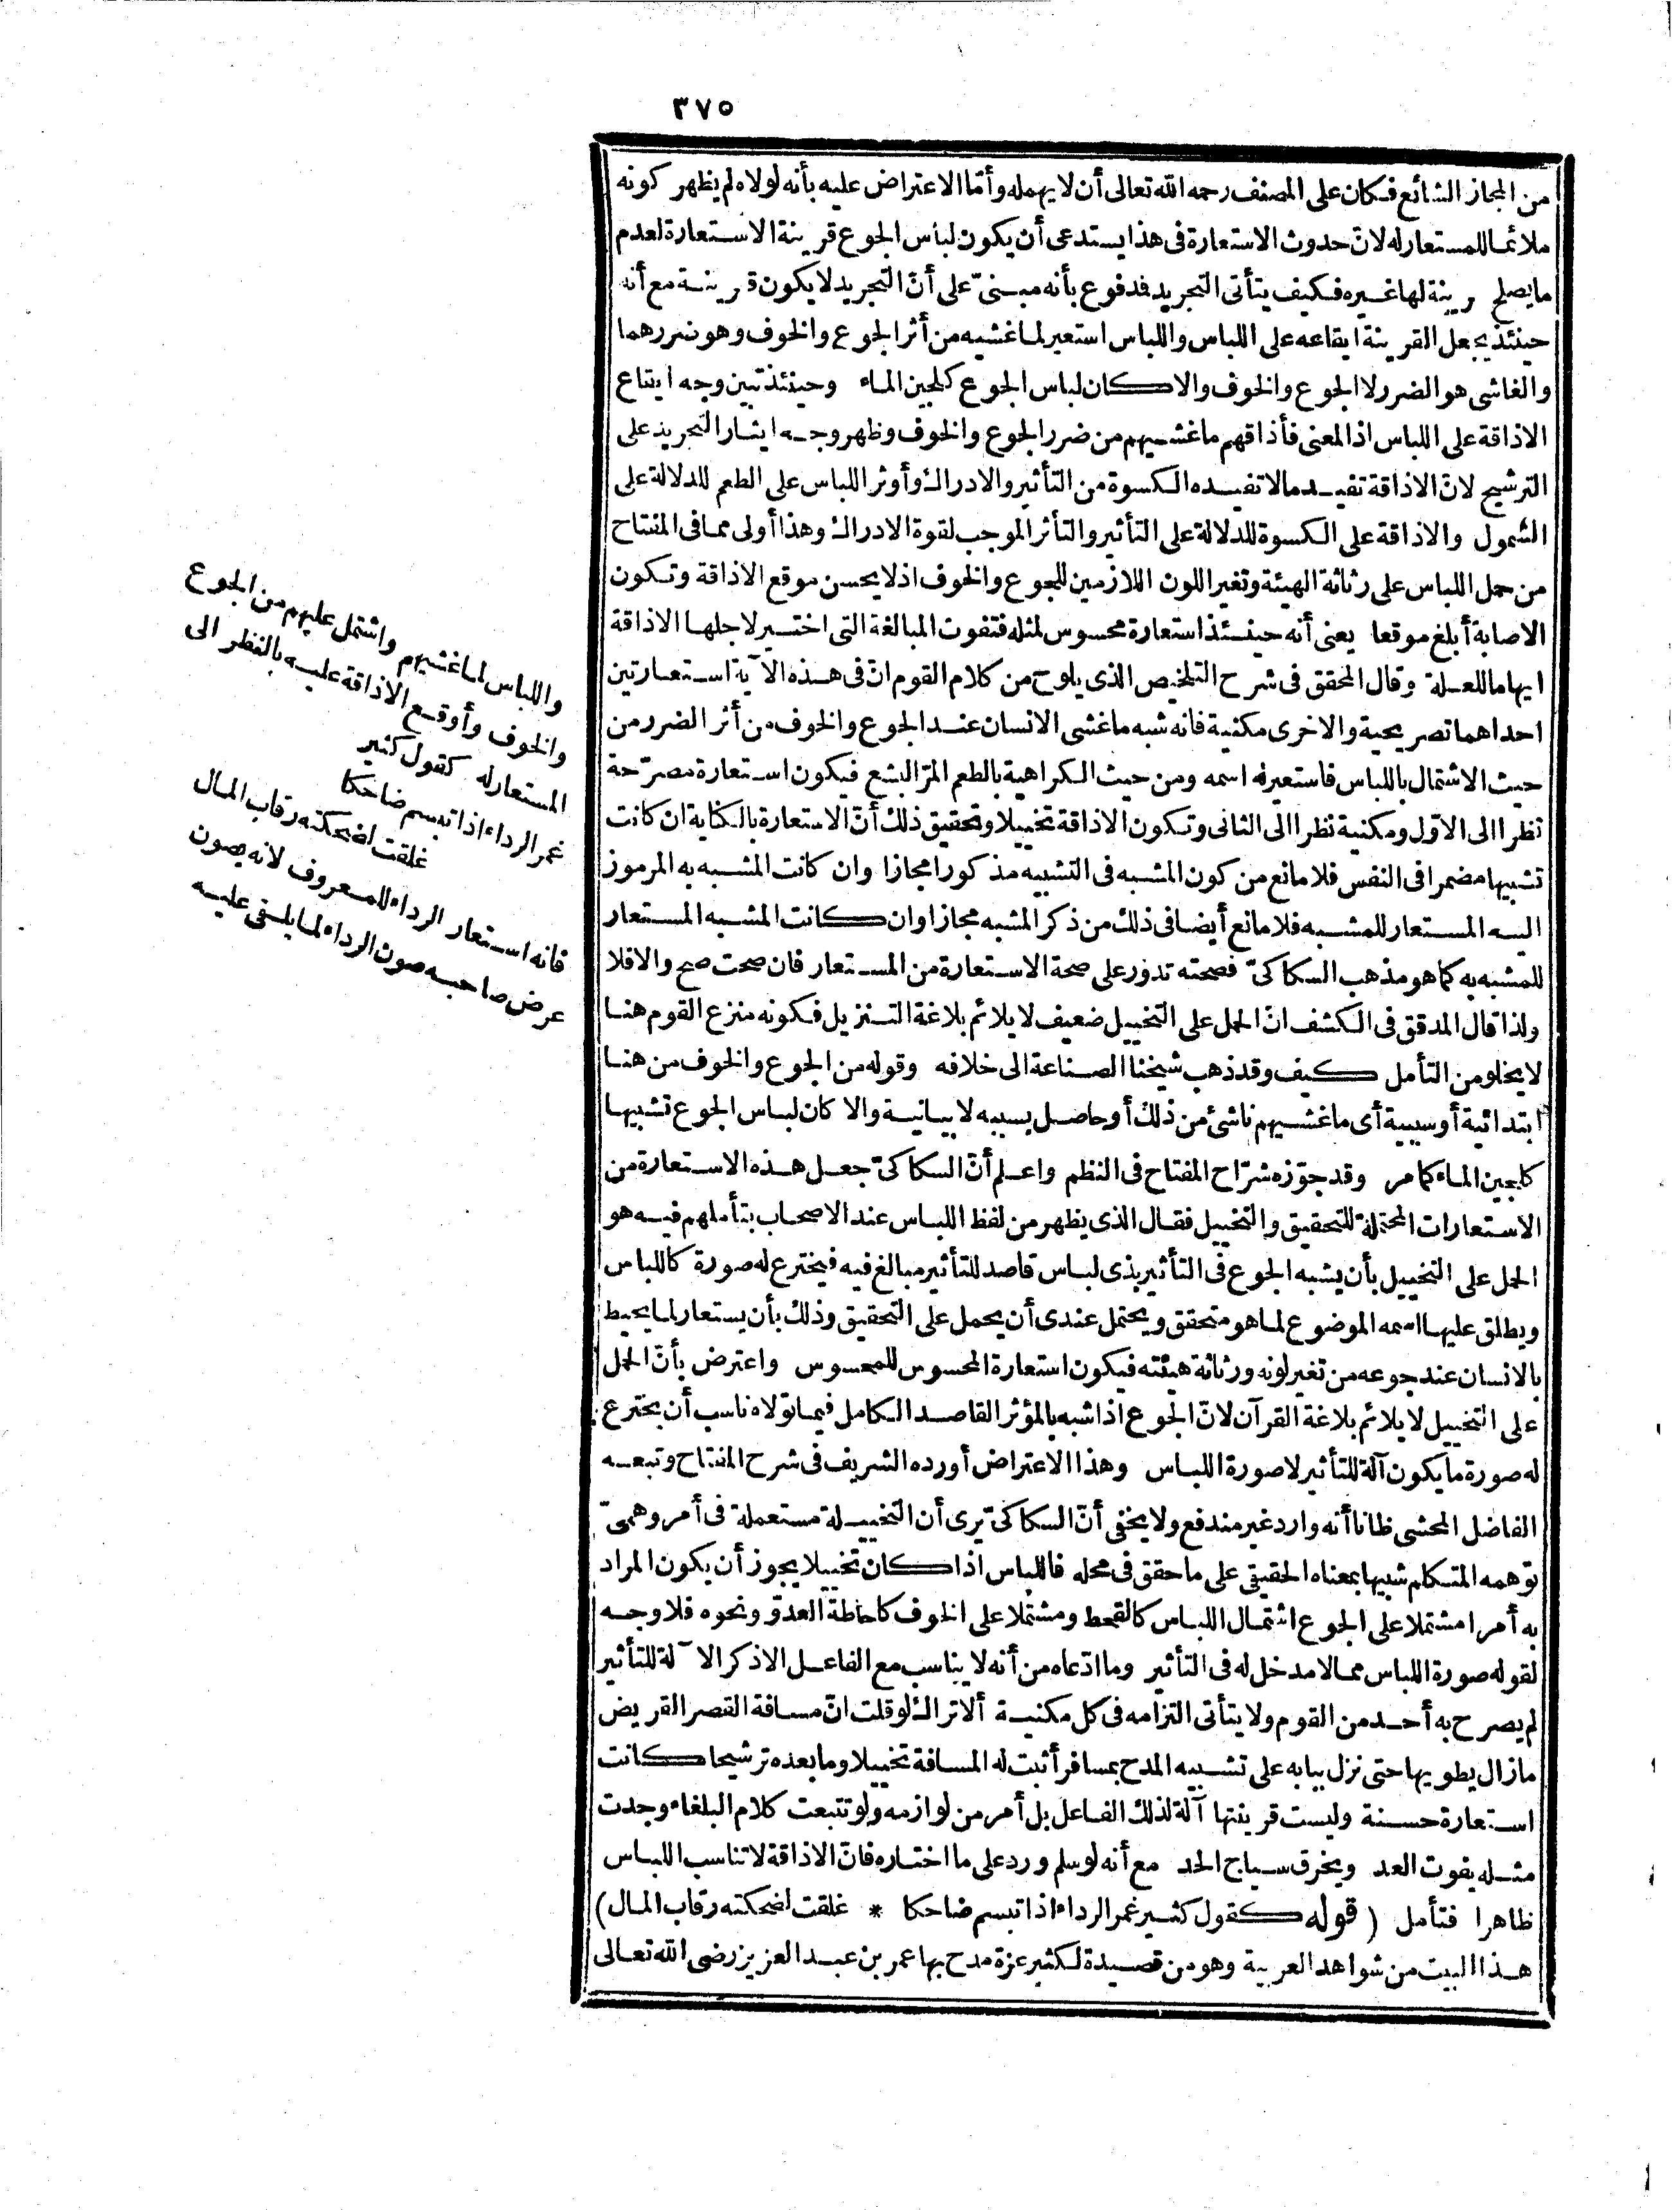 ٣٧٥
من المجاز الشائع فكان على المصنف رحمه الله تعالى أن لا يهمله وأمّا الاعتراض عليه بأنه لولاه لم يظهر كونه
ملائما للمستعارله لانّ حدوث الاستعارة فى هذا يستدعى أن يكون لباس الجوع قرينة الاستعارة لعدم
ما يصلح رينة لها غيره فكيف يتأتى التجريد فدفوع بأنه مبنىّ على أنّ التجريد لا يكون قرينة مع أنه
حينئذ يجعل القرينة ايقاعه على اللباس واللباس استعير لما غشيه من أثر الجوع والخوف وهو ضررهما
والغاشى هو الضرر لا الجوع والخوف والا كان لباس الجوع كلجين الماء وحينئذ تبين وجه ايقاع
الاذاقة على اللباس اذ المعنى فأذاقهم ما غشيهم من ضرر الجوع والخوف وظهر وجه ايثار التجريد على
الترشيح لانّ الاذاقة تفيد ما لا تفيده الكسوة من التأثير والادراك وأوثر اللباس على الطعم للدلالة على
الشمول والاذاقة على الكسوة للدلالة على التأثير والتأثر الموجب لقوة الادراك وهذا أولى مما فى المفتاح
من حمل اللباس على رثاثة الهيئة وتغير اللون اللازمين للجوع والخوف اذ لا يحسن موقع الاذاقة وتكون
الاصابة أبلغ موقعا يعنى أنه حينئذ استعارة محسوس لمثله فتفوت المبالغة التى اختير لاجلها الاذاقة
ايهاما للعلة وقال المحقق فى شرح التلخيص الذى يلوح من كلام القوم انّ فى هذه الآية استعارتين
احداهما تصريحية والاخرى مكنية فانه شبه ما غشى الانسان عند الجوع والخوف من أثر الضرر من
حيث الاشتمال باللباس فاستعير له اسمه ومن حيث الكراهية بالطعم المرّ البشع فيكون استعارة مصرّحة
نظرا الى الاوّل ومكنية نظرا الى الثانى وتكون الاذاقة تخييلا وتحقيق ذلك أنّ الاستعارة بالكناية ان كانت
تشبيها مضمرا فى النفس فلا مانع من كون المشبه فى التشبيه مذكورا مجازا وان كانت المشبه به المرموز
اليه المستعار للمشبه فلا مانع أيضا فى ذلك من ذكر المشبه مجازا وان كانت المشبه المستعار
للمشبه به كما هو مذهب السكاكىّ فصحته تدور على صحة الاستعارة من المستعار فان صحت صح والا فلا
ولذا قال المدقق فى الكشف انّ الحمل على التخييل ضعيف لا يلائم بلاغة التنزيل فكونه منزع القوم هنا
لا يخلو من التأمل كيف وقد ذهب شيخنا الصناعة الى خلافه وقوله من الجوع والخوف من هنا
ابتدائية أو سببية أى ما غشيهم ناشئ من ذلك أو حاصل بسببه لا بيانية والا كان لباس الجوع تشبيها
كلجين الماء كما مر وقد جوّزه شرّاح المفتاح فى النظم واعلم أنّ السكاكىّ جعل هذه الاستعارة من
الاستعارات المحتملة للتحقيق والتخييل فقال الذى يظهر من لفظ اللباس عند الاصحاب بتأملهم فيه هو
الحمل على التخييل بأن يشبه الجوع فى التأثير بذى لباس قاصد للتأثير مبالغ فيه فيخترع له صورة كاللباس
ويطلق عليها اسمه الموضوع لما هو متحقق ويحتمل عندى أن يحمل على التحقيق وذلك بأن يستعار لما يحيط
بالانسان عند جوعه من تغير لونه ورثاثة هيئته فيكون استعارة المحسوس للمحسوس واعترض بأنّ الحمل
على التخييل لا يلائم بلاغة القرآن لانّ الجوع اذا شبه بالمؤثر القاصد الكامل فيما تولاه ناسب أن يخترع
له صورة ما يكون آلة للتأثير لا صورة اللباس وهذا الاعتراض أورده الشريف فى شرح المفتاح وتبعه
الفاضل المحشى ظانا أنه وارد غير مندفع ولا يخفى أنّ السكاكىّ يرى أن التخييلية مستعملة فى أمر وهمىّ
توهمه المتكلم شبيها بمعناه الحقيقى على ما حقق فى محله فاللباس اذا كان تخييلا يجوز أن يكون المراد
به أمرا مشتملا على الجوع اشتمال اللباس كالقحط ومشتملا على الخوف كاحاطة العدوّ ونحوه فلا وجه
لقوله صورة اللباس مما لا مدخل له فى التأثير وما ادّعاه من أنه لا يناسب مع الفاعل الا ذكر الآلة للتأثير
لم يصرح به أحد من القوم ولا يتأتى التزامه فى كل مكنية ألا تراك لو قلت انّ مسافة القصر القريض
ما زال يطويها حتى نزل ببابه على تشبيه المدح بمسافر أثبت له المسافة تخييلا وما بعده ترشيحا كانت
استعارة حسنة وليست قرينتها آلة لذلك الفاعل بل أمر من لوازمه ولو تتبعت كلام البلغاء وجدت
مثله يفوت العد ويخرق سياج الحد مع أنه لو سلم ورد على ما اختاره فانّ الاذاقة لا تناسب اللباس
ظاهرا فتأمل (قوله كقول كثير غمر الرداء اذا تبسم ضاحكا * غلقت لضحكته رقاب المال)
هذا البيت من شواهد العربية وهو من قصيدة لكثير عزة مدح بها عمر بن عبد العزيز رضى الله تعالى
واللباس لما غشيهم واشتمل عليهم من الجوع
والخوف وأوقع الاذاقة عليه بالنظر الى
المستعارله كقول كثير
غمر الرداء اذا تبسم ضاحكا
غلقت لضحكته رقاب المال
فانه استعار الرداء للمعروف لانه يصون
عرض صاحبه صون الرداء لما يلقى عليه